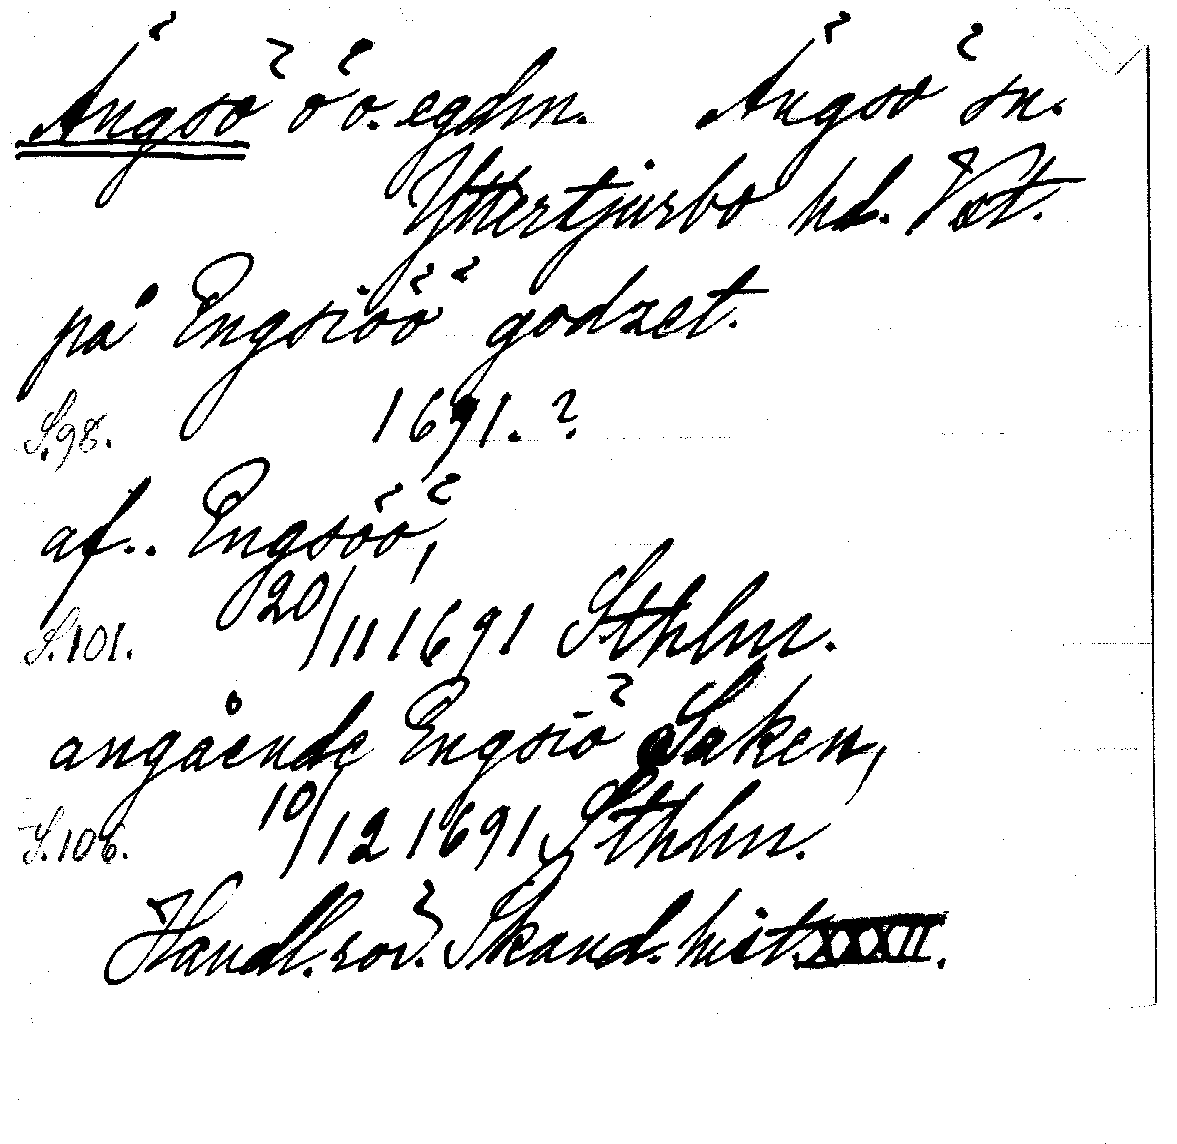 Ängsö ö o. egdm. Ängsö sn.
Yttertjurbo hd. Vst.
på Engsiöö godzet.
S. 98. 1691. ?
af.. Engsöö,
S. 101. 20/11 1691 Sthlm.
angående Engsiö Saken,
S. 106. 10/12 1691 Sthlm.
Handl. rör. Skand. hist. XXXII.